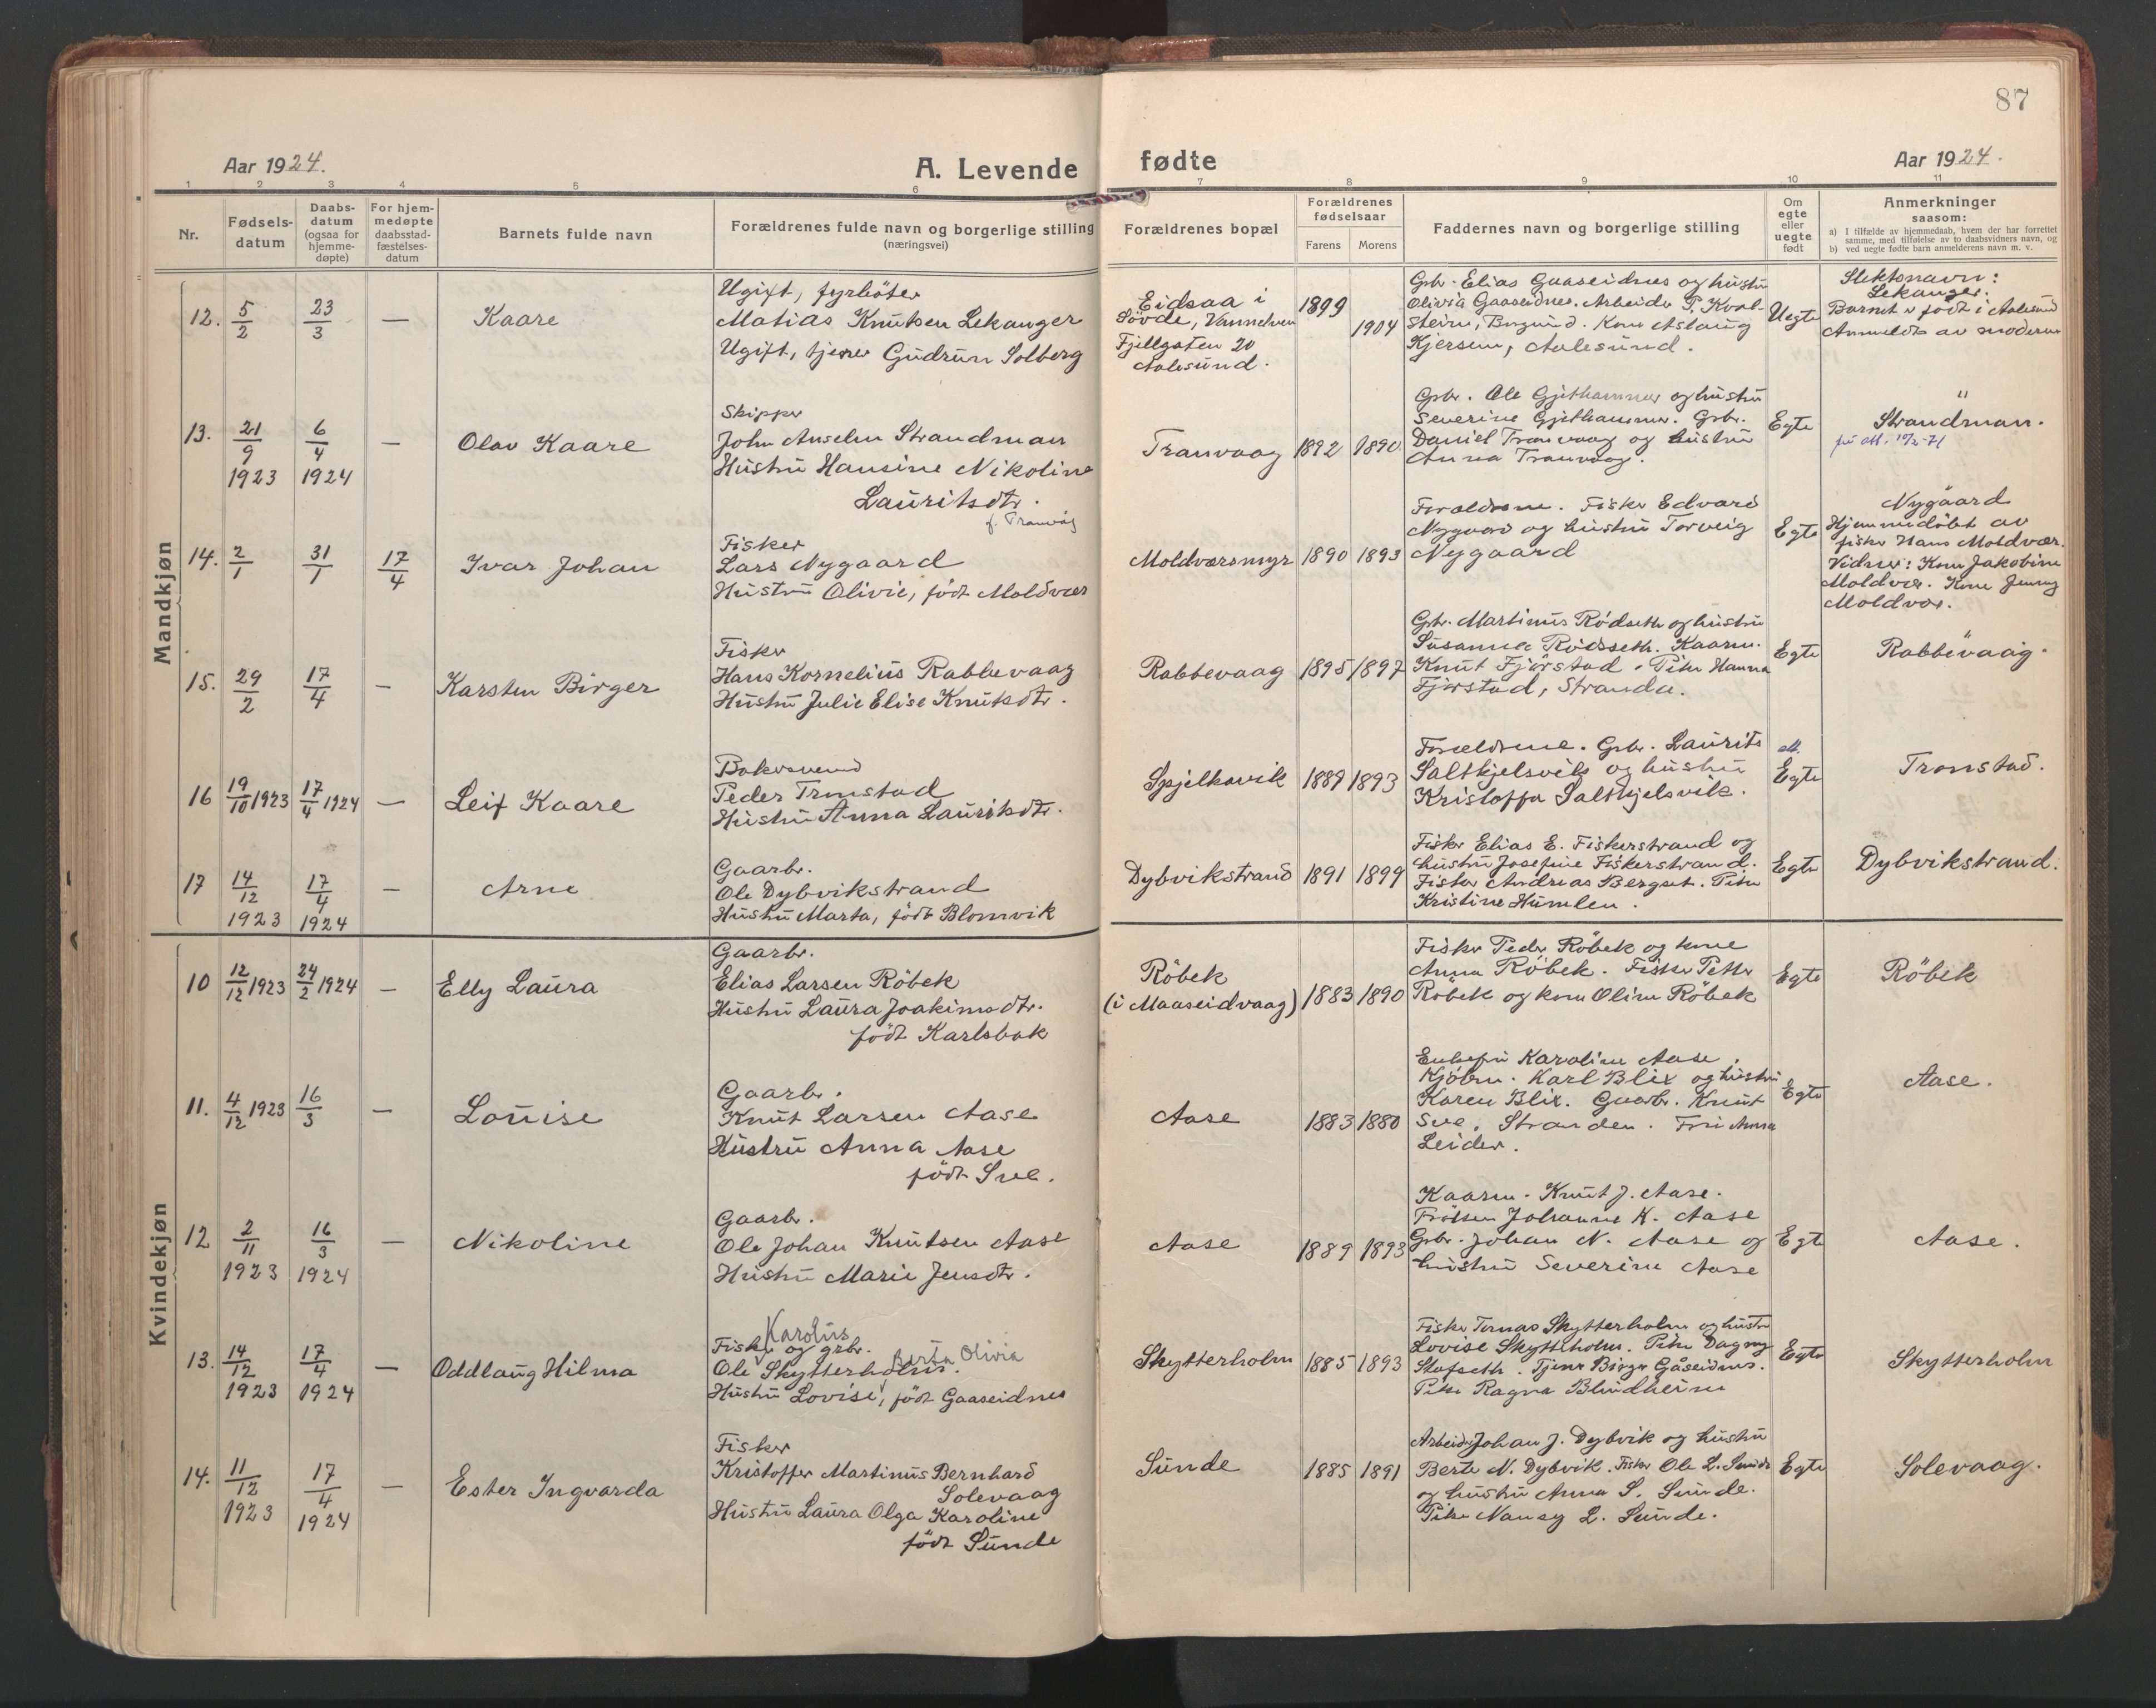 87
Aar 1924.
A. Levende
fødte
Aar 1924.
1 2 3 4 5 6 7 8 9 10 11
Nr.
Fødsels-
datum
Daabs-
datum
(ogsaa for
hjemme-
døpte)
For hjem-
medøpte
daabsstad-
fæstelses-
datum
Barnets fulde navn
Forældrenes fulde navn og borgerlige stilling
(næringsvei)
Forældrenes bopæl
Forældrenes
fødselsaar
Farens Morens
Faddernes navn og borgerlige stilling
Om
egte
eller
uegte
født
Anmerkninger
saasom:
a) I tilfælde av hjemmedaab, hvem der har forrettet
samme, med tilføielse av to daabsvidners navn, og
b) ved uegte fødte barn anmelderens navn m. v.
Mandkjøn
12. 5/2 23/3 — Kaare
Ugift, fyrbøter
Matias Knutsen Lekanger
Ugift, tjener Gudrun Solberg
Eidsaa i
Søvde, Vannelven
Fjellgaten 20
Aalesund.
1899
1904
Gbr. Elias Gaaseidnes og hustru
Olivia Gaaseidnes. Arbeider P. Kval-
stein, Borgund. Kone Aslaug
Kjersem, Aalesund.
Uegte
Slektsnavn:
Lekanger.
Barnet er født i Aalesund
Anmeldt av moderen
13. 21/9 1923 6/4 1924 — Olav Kaare
Skipper
John Anselm Strandman
Hustru Hansine Nikoline
Lauritsdtr.
f. Tranvåg
Tranvaag
1892 1890
Gbr. Ole Gjithammer og hustru
Severine Gjithammer. Gbr.
Daniel Tranvaag og hustru
Anna Tranvaag.
Egte
"
Strandman.
14. 2/1 31/1 17/4 Ivar Johan
Fisker
Lars Nygaard
Hustru Olivie, født Moldvær
Moldværsmyr
1890 1893
Forældrene. Fisker Edvard
Nygaard og hustru Torveig
Nygaard
Egte
Nygaard
Hjemmedøbt av
fisker Hans Moldvær.
Vidner: Kone Jakobine
Moldvær. Kone Jenny
Moldvær.
15. 29/2 17/4 — Karsten Birger
Fisker
Hans Kornelius Rabbevaag
Hustru Julie Elise Knutsdtr.
Rabbevaag
1895 1897
Gbr. Martinus Rødseth og hustru
Susanne Rødseth. Kaarm.
Knut Fjørstad. Pike Hanna
Fjørstad, Stranda.
Egte
Rabbevaag.
16 19/10 1923 17/4 1924 — Leif Kaare
Bakersvend
Peder Tronstad
Hustru Anna Lauritsdtr.
Spjelkavik
1889 1893
Forældrene. Gbr. Laurits
Saltkjelsvik og hustru
Kristoffa Saltkjelsvik.
Egte
Tronstad.
17 14/12 1923 17/4 1924 — Arne
Gaarbr.
Ole Dybvikstrand
Hustru Marta, født Blomvik
Dybvikstrand
1891 1899
Fisker Elias E. Fiskerstrand og
hustru Josefine Fiskerstrand.
Fisker Andreas Bergset. Pike
Kristine Humlen.
Egte
Dybvikstrand.
Kvindekjøn
10 12/12 1923 24/2 1924 — Elly Laura
Gaarbr.
Elias Larsen Røbek
Hustru Laura Joakimsdtr.
født Karlsbak
Røbek
(i Maaseidvaag)
1883 1890
Fisker Peder Røbek og kone
Anna Røbek. Fisker Petter
Røbek og kone Oline Røbek
Egte
Røbek
11. 4/12 1923 16/3 — Louise
Gaarbr.
Knut Larsen Aase
Hustru Anna Aase
født Sve.
Aase
1883 1880
Enkefru Karoline Aase,
Kjøbm. Karl Blix og hustru
Karen Blix. Gaarbr. Knut
Sve, Stranden. Frk Anna
Leider.
Egte
Aase.
12 2/11 1923 16/3 1924 — Nikoline
Gaarbr.
Ole Johan Knutsen Aase
Hustru Marie Jensdtr.
Aase
1889 1893
Kaarm. Knut J. Aase.
Frøken Johanne K. Aase
Gbr. Johan N. Aase og
hustru Severine Aase
Egte
Aase.
13. 14/12 1923 17/4 1924 — Oddlaug Hilma
Karolus
Fisker og gbr.
Berta Olivia
Ole Skytterholm.
Hustru Lovise, født Gaaseidnes
Skytterholm
1885 1893
Fisker Tomas Skytterholm og hustru
Lovise Skytterholm. Pike Dagny
Stafseth. Tjener Birger Gåseidnes.
Pike Ragna Blindheim
Egte
Skytterholm
14. 11/12 1923 17/4 1924 — Ester Ingvarda
Fisker
Kristoffer Martinus Bernhard
Solevaag
Hustru Laura Olga Karoline
født Sunde
Sunde
1885 1891
Arbeider Johan J. Dybvik og hustru
Berte N. Dybvik. Fisker Ole L. Sunde
og hustru Anna S. Sunde.
Pike Nansy L. Sunde.
Egte
Solevaag.